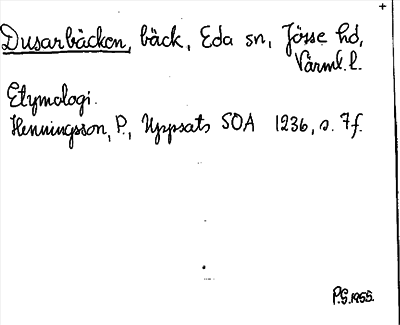 +
Dusarbäcken, bäck, Eda sn, Jösse hd,
Värml. l.
Etymologi.
Henningsson, P., Uppsats SOA 1236, s. 7f.
P.G. 1955.